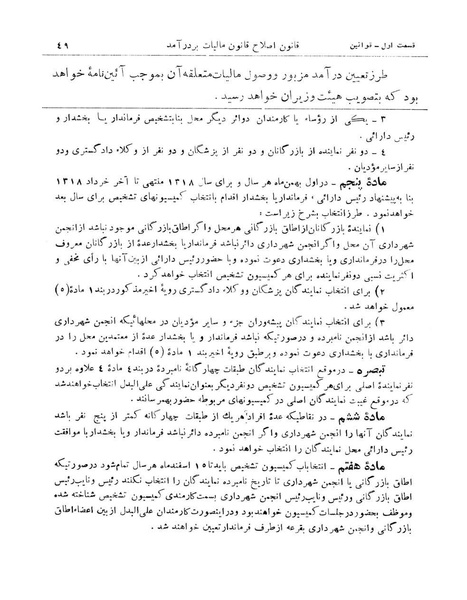 قسمت اول - قوانین قانون اصلاح قانون مالیات بر درآمد ٤٩
طرز تعیین درآمد مزبور و وصول مالیات متعلقه آن بموجب آئین‌نامهٔ خواهد
بود که بتصویب هیئت وزیران خواهد رسید.
٣ - یکی از رؤساء یا کارمندان دوائر دیگر محل بنا بتشخیص فرماندار یا بخشدار و
رئیس دارائی.
٤ - دو نفر نماینده از بازرگانان و دو نفر از پزشکان و دو نفر از وکلاء دادگستری و دو
نفر از سایر مؤدیان.
مادهٔ پنجم - در اول بهمن‌ماه هر سال و برای سال ١٣١٨ منتهی تا آخر خرداد ١٣١٨
بنا به پیشنهاد رئیس دارائی، فرماندار یا بخشدار اقدام بانتخاب کمیسیونهای تشخیص برای سال بعد
خواهد نمود. طرز انتخاب بشرح زیر است:
١) نمایندهٔ بازرگانان از اطاق بازرگانی هر محل و اگر اطاق بازرگانی موجود نباشد از انجمن
شهرداری آن محل و اگر انجمن شهرداری دائر نباشد فرماندار یا بخشدار عدهٔ از بازرگانان معروف
محل را در فرمانداری و یا بخشداری دعوت نموده و با حضور رئیس دارائی از بین آنها با رأی مخفی و
اکثریت نسبی دو نفر نماینده برای هر کمیسیون تشخیص انتخاب خواهد کرد.
٢) برای انتخاب نمایندگان پزشکان و وکلاء دادگستری رویهٔ اخیر مذکور در بند ١ مادهٔ (٥)
معمول خواهد شد.
٣) برای انتخاب نمایندگان پیشه‌وران جزء و سایر مؤدیان در محلهائیکه انجمن شهرداری
دائر باشد از انجمن نامبرده و در صورتیکه نباشد فرماندار و یا بخشدار عدهٔ از معتمدین محل را در
فرمانداری یا بخشداری دعوت نموده و بر طبق رویهٔ اخیر بند ١ مادهٔ (٥) اقدام خواهد نمود.
تبصره - در موقع انتخاب نمایندگان طبقات چهارگانهٔ نامبردهٔ در بند ٤ مادهٔ ٤ علاوه بر دو
نفر نمایندهٔ اصلی برای هر کمیسیون تشخیص دو نفر دیگر بعنوان نمایندگی علی‌البدل انتخاب خواهند شد
که در موقع غیبت نمایندگان اصلی در کمیسیونهای مربوطه حضور بهمرسانند.
مادهٔ ششم - در نقاطیکه عدهٔ افراد هر یك از طبقات چهارگانه کمتر از پنج نفر باشد
نمایندگان آنها را انجمن شهرداری و اگر انجمن نامبرده دائر نباشد فرماندار و یا بخشدار با موافقت
رئیس دارائی محل نمایندگان را انتخاب خواهد نمود.
مادهٔ هفتم - انتخابات کمیسیون تشخیص باید تا ١٥ اسفندماه هر سال تمام شود در صورتیکه
اطاق بازرگانی یا انجمن شهرداری تا تاریخ نامبرده نمایندگان را انتخاب نکنند رئیس و نایب رئیس
اطاق بازرگانی و رئیس و نایب رئیس انجمن شهرداری بسمت کارمندی کمیسیون تشخیص شناخته شده
و موظف بحضور در جلسات کمیسیون خواهند بود و در اینصورت کارمندان علی‌البدل از بین اعضاء اطاق
بازرگانی و انجمن شهرداری بقرعه از طرف فرماندار تعیین خواهند شد.